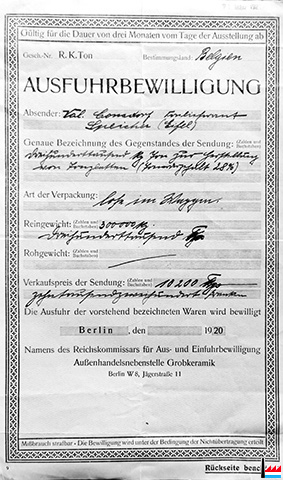 Gültig für die Dauer von drei Monaten vom Tage der Ausstellung ab
Gesch.-Nr. R.K.Ton Bestimmungsland: Belgien
AUSFUHRBEWILLIGUNG
Absender: Val.
Speicher (Eifel)
Genaue Bezeichnung des Gegenstandes der Sendung: (Zahlen und Buchstaben)
Dreihunderttausend Kg Ton zur Herstellung
von (Tonerdegehalt 28%)
Art der Verpackung: lose im Waggon
Reingewicht: (Zahlen und Buchstaben) 300000 Kg
dreihunderttausend Kgr
Rohgewicht: (Zahlen und Buchstaben)
Verkaufspreis der Sendung: (Zahlen und Buchstaben) 10 200
zehntausendzweihundert Franken
Die Ausfuhr der vorstehend bezeichneten Waren wird bewilligt
Berlin, den 1920
Namens des Reichskommissars für Aus- und Einfuhrbewilligung
Außenhandelsnebenstelle Grobkeramik
Berlin W 8, Jägerstraße 11
Mißbrauch strafbar - Die Bewilligung wird unter der Bedingung der Nichtübertragung erteilt
Rückseite beac